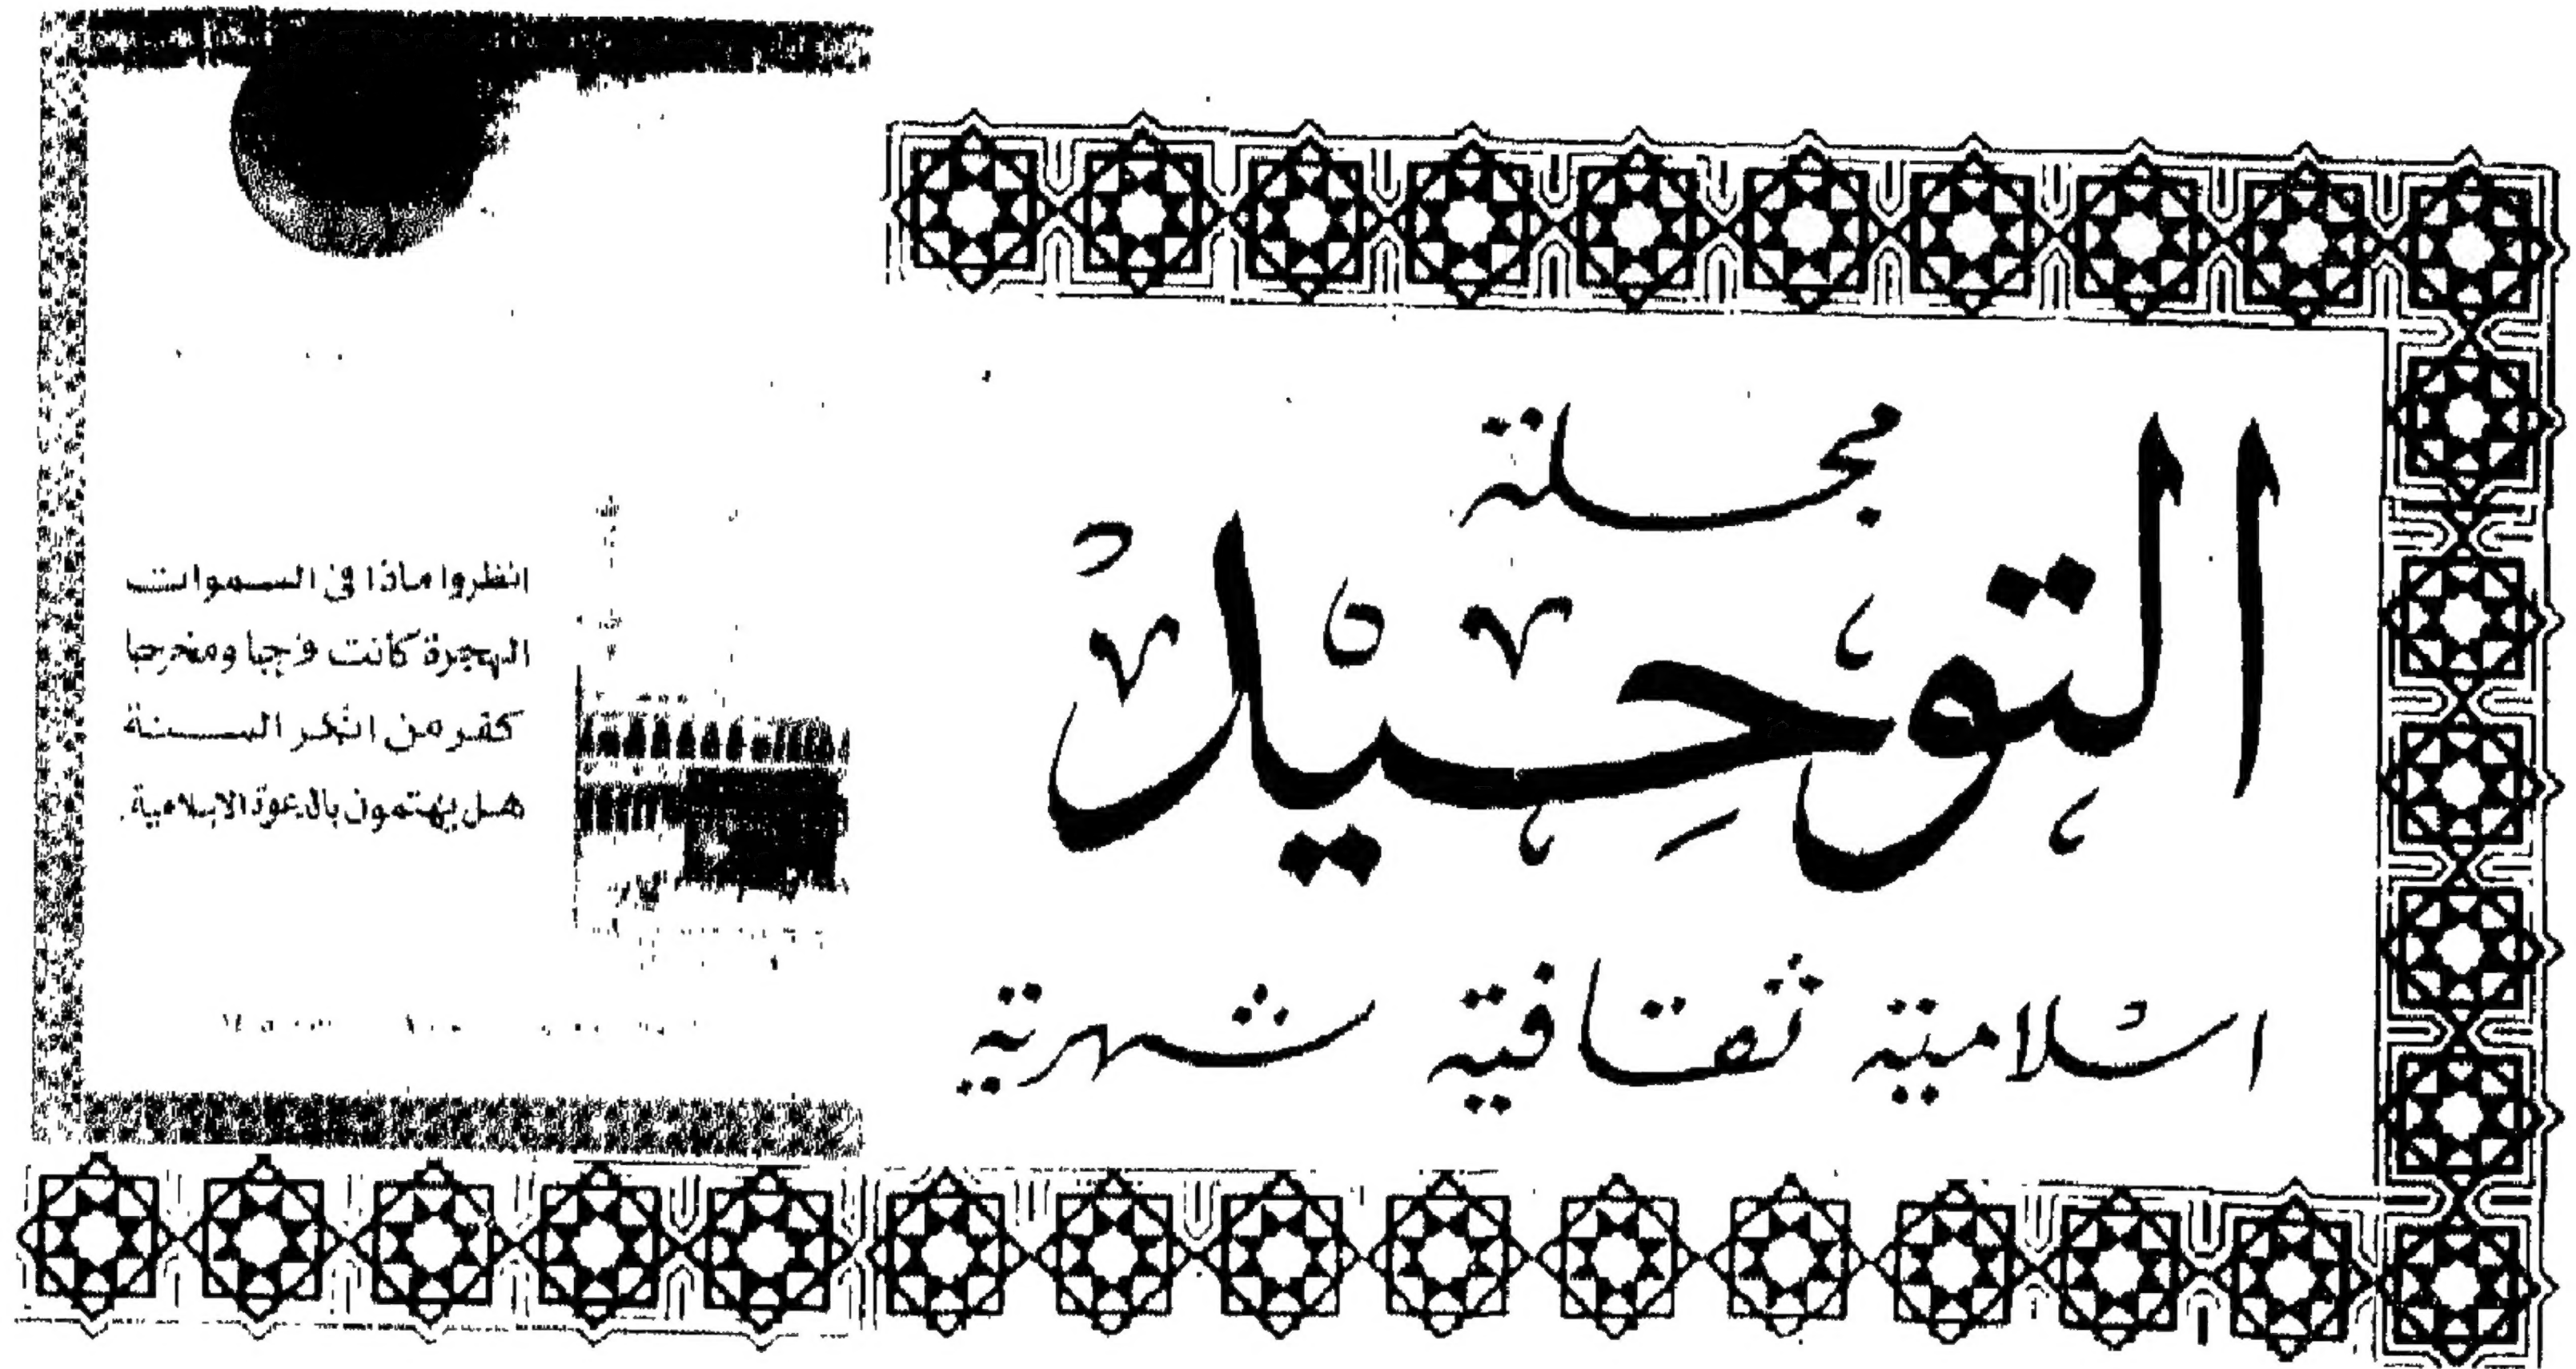 مجلة
التوحيد
اسلامية ثقافية شهرية
انظروا ماذا في السموات
الهجرة كانت فرجا ومخرجا
كفر من انكر السنة
هل يهتمون بالدعوة الاسلامية.